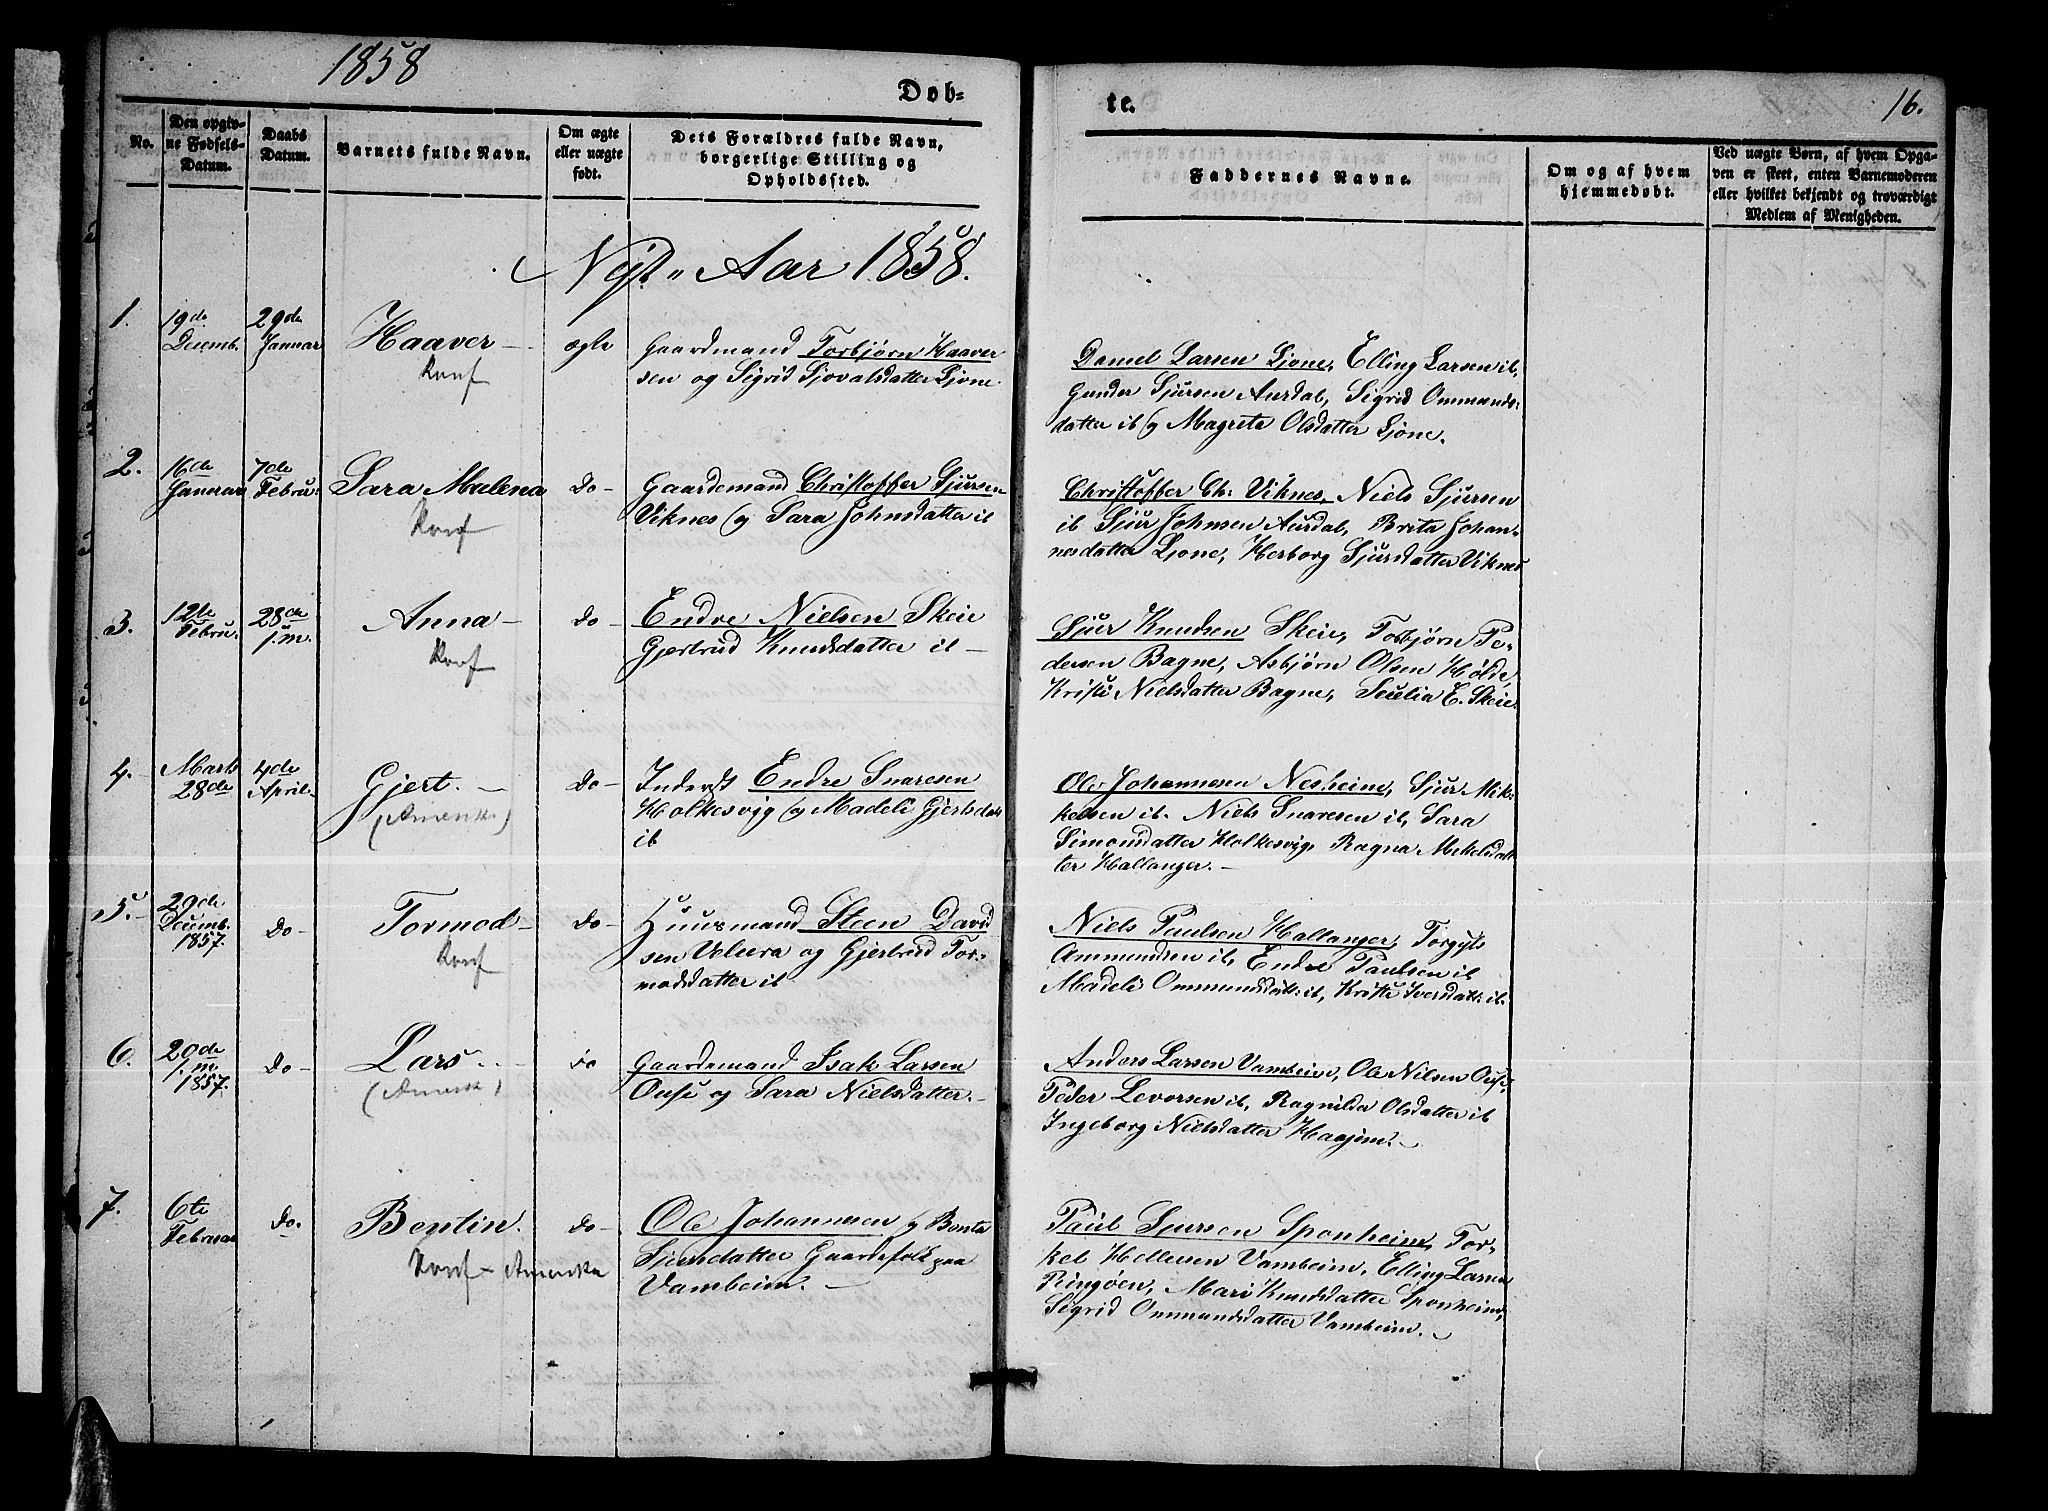 1858
Døb-
te.
16.
No.
Den opgiv-
ne Fødsels-
Datum.
Daabs
Datum.
Barnets fulde Navn.
Om ægte
eller uægte
født.
Dets Forældres fulde Navn,
borgerlige Stilling og
Opholdssted.
Faddernes Navne.
Om og af hvem
hjemmedøbt.
Ved uægte Børn, af hvem Opga-
ven er skeet, enten Barnemoderen
eller hvilket bekjendt og troværdigt
Medlem af Menigheden.
Nyt Aar 1858.
1.
19de
Decemb.
29de
Januar
Haaver
Konf
ægte
Gaardmand Torbjørn Haaver
sen og Sigrid Sjovalsdatter Ljone.
Daniel Larsen Ljone, Elling Larsen ib,
Gunder Sjursen Aurdal, Sigrid Ommunds-
datter ib og Magrete Olsdatter Ljone.
2.
16de
Januar
7de
Febru:
Sara Malena
Konf
Do
Gaardemand Christoffer Sjursen
Viknes og Sara Johnsdatter ib
Christoffer Ch: Viknes, Niels Sjursen
ib Sjur Johnsen Aurdal, Brita Johan-
nesdatter Ljone, Herborg Sjursdatter Viknes
3.
12te
Febru.
28de
j.m.
Anna
Konf
Do
Endre Nielsen Skeie
Gjertrud Knudsdatter ib
Sjur Knudsen Skeie, Torbjørn Pe-
dersen Bagne, Asbjørn Olsen Hølde,
Kristi Nielsdatter Bagne, Seselia E. Skeie.
4.
Marts
28de
4de
April
Gjert.
(Amerik.)
Do
Inderst Endre Snaresen
Holkesvig og Madeli Gjertsdat
ib
Ole Johannesen Nesheim, Sjur Mik-
kelsen ib. Niels Snaresen ib, Sara
Simonsdatter Holkesvig, Ragna Mikelsdat-
ter Hallanger.
5.
29de
Decemb.
1857.
Do
Tormod
Konf
Do
Huusmand Steen David
sen Velura og Gjertrud Tor-
modsdatter ib
Niels Paulsen Hallanger, Torgyls
Ammundsen ib, Endre Paulsen ib
Madeli Ommundsdatt: ib, Kristi Iversdatt: ib.
6.
20de
j.m.
1857.
Do
Lars
(Amerik)
Do
Gaardemand Isak Larsen
Ouse og Sara Nielsdatter.
Anders Larsen Vambeim, Ole Nilsen Ouse,
Peder Levorsen ib, Ragnilda Olsdatter ib
Ingeborg Nielsdatter Haajem.
7.
6te
Februar
Do.
Bentin.
Konf - Amerika
Do
Ole Johannesen og Benta
Sjursdatter Gaardefolk paa
Vambeim.
Paul Sjursen Sponheim, Tor-
kel Hellesen Vambeim, Elling Larsen
Ringøen, Mari Knudsdatter Sponheim,
Sigrid Ommundsdatter Vambeim.